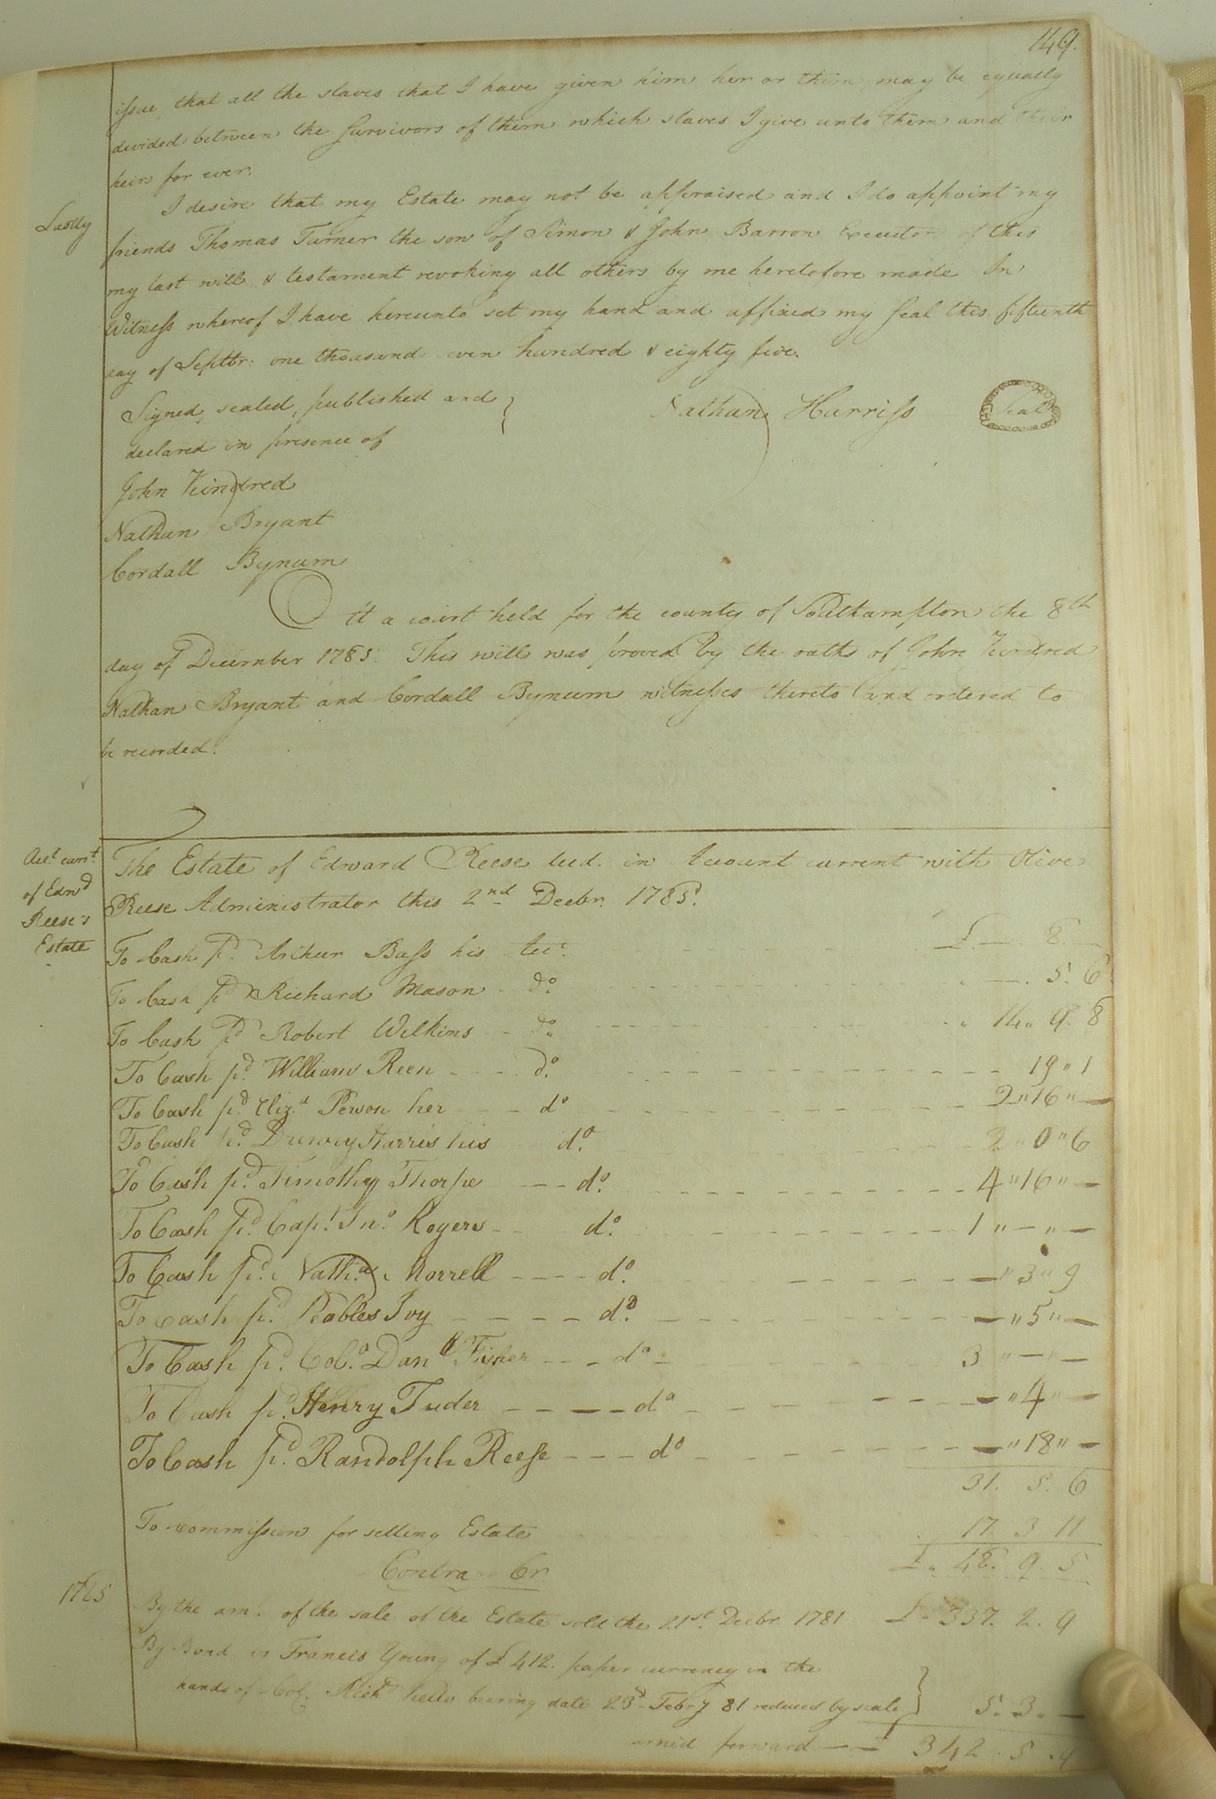 149.
issue, that all the slaves that I have given him her or them may be equally
divided between the survivors of them which slaves I give unto them and their
heirs for ever.
Lastly I desire that my Estate may not be appraised and I do appoint my
friends Thomas Turner the son of Simon & John Barron Executors of this
my last will & testament revoking all others by me heretofore made In
Witness whereof I have hereunto set my hand and affixed my seal this fifteenth
day of Septbr. one thousand seven hundred & eighty five.
Signed, sealed, published and } Nathan Harriss Seal
declared in presence of
John Kindred
Nathan Bryant
Cordall Bynum
At a court held for the county of Southampton the 8th
day of December 1785. This will was proved by the oaths of John Kindred
Nathan Bryant and Cordall Bynum witnesses thereto and ordered to
be recorded.
Acct. currt. of Edwd Reese's Estate
The Estate of Edward Reese decd. in Account current with Olive
Reese Administrator this 2nd Decbr. 1785.
To Cash pd. Arthur Bass his Acc. £ — . 8. —
To Cash pd Richard Mason do. — . 5. 6
To Cash pd Robert Wilkins do. 14 " 9. 8
To Cash pd. William Reen do. 19 " 1
To Cash pd. Eliza. Person her do 2 " 16 " —
To Cash pd. Drewry Harris his do. 2 " 0 " 6
To Cash pd. Timothy Thorpe do. 4 " 16 " —
To Cash pd. Capt. Jno. Rogers do. 1 " — " —
To Cash pd. Nathl. Norrell do. — " 3 " 9
To Cash pd. Peobles Ivy do. — " 5 " —
To Cash pd. Colo. Danl. Fisher do 3 " — " —
To Cash pd. Henry Tuder do — " 4 " —
To Cash pd. Randolph Reese do — " 18 " —
31. 5. 6
To commission for selling Estate 17. 3 11
£. 48. 9. 5
Contra Cr
1785 By the amt. of the sale of the Estate sold the 21st. Decbr. 1781 £. 337. 2. 9
By Bond on Francis Young of £412. paper currency in the
hands of Col. Richd bearing date 23d Febry 81 reduced by scale } 5. 3. —
carried forward — 342. 5. 9